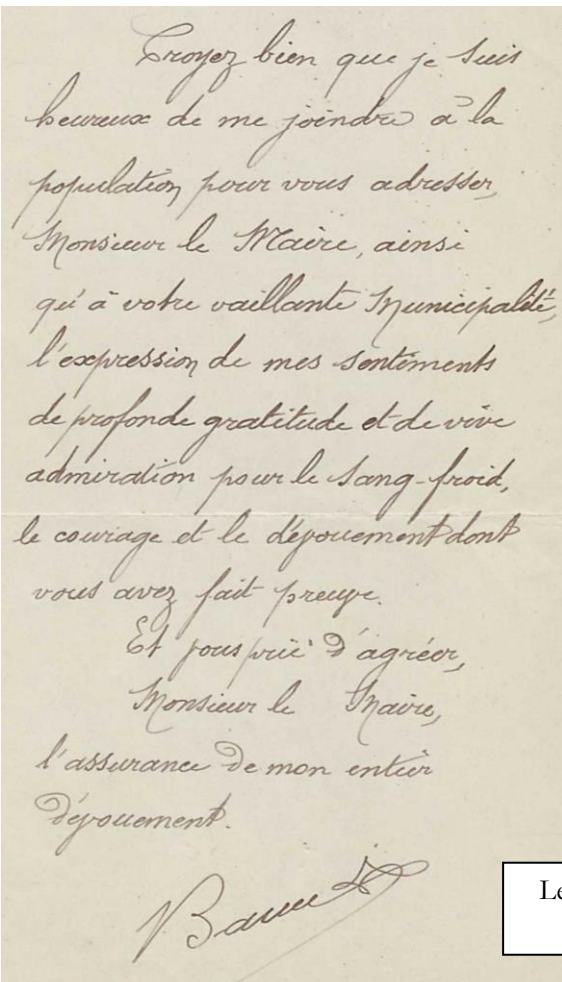 Croyez bien que je suis
heureux de me joindre à la
population pour vous adresser,
Monsieur le Maire, ainsi
qu'à votre vaillante Municipalité,
l'expression de mes sentiments
de profonde gratitude et de vive
admiration pour le sang-froid,
le courage et le dévouement dont
vous avez fait preuve.
Et vous prie d'agréer,
Monsieur le Maire,
l'assurance de mon entier
dévouement.
Le